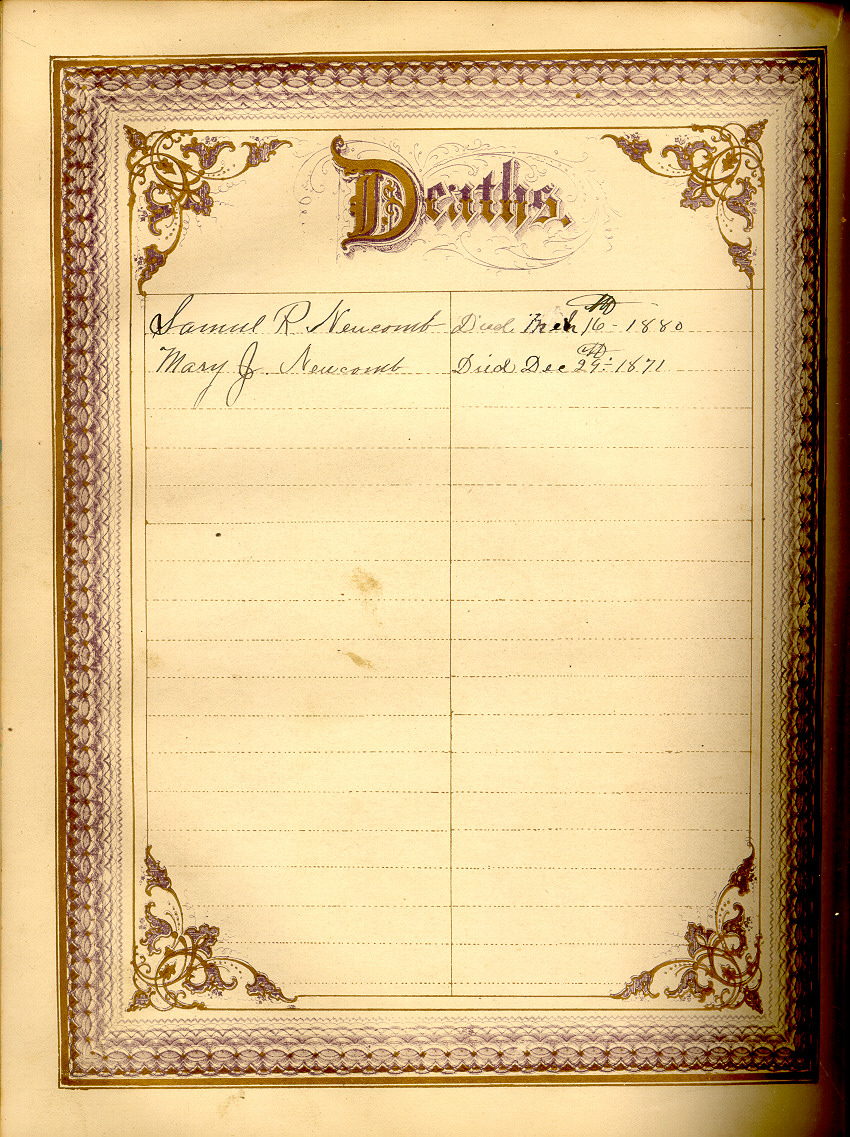 Deaths.
Samuel R Newcomb Died Mch 16th 1880
Mary J. Newcomb Died Dec 29th 1871